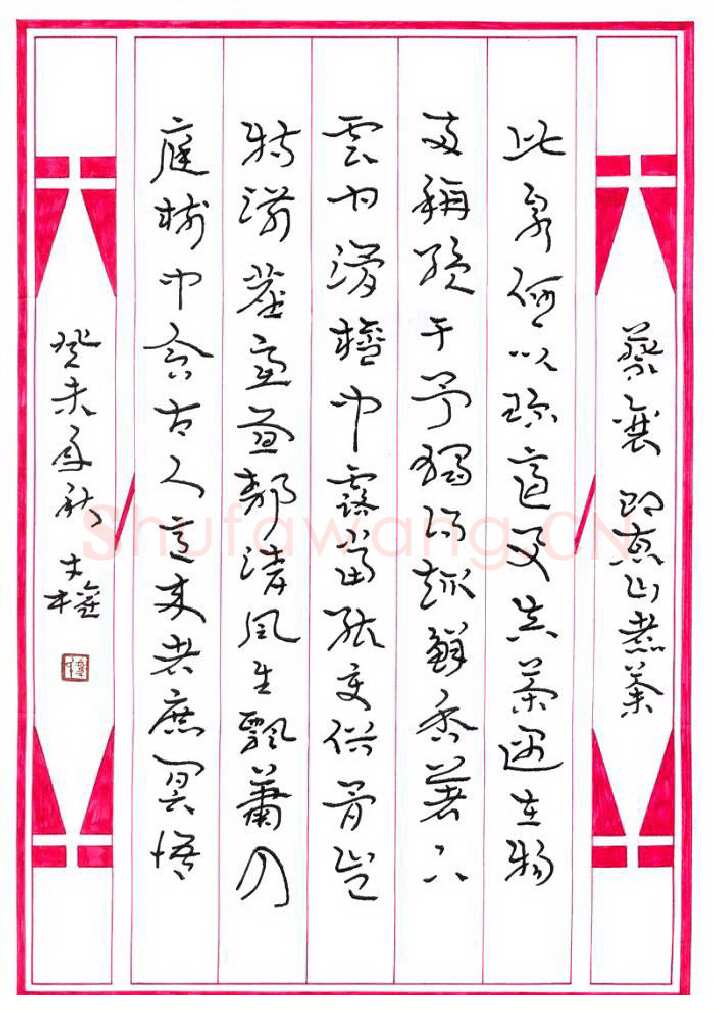 蔡襄 即惠山煮茶
此泉何以珍適與真茶遇在物
兩稱絕于予獨得趣鮮香箸下
雲甘滑中露當能變俗骨豈
特湔塵慮晝靜清風生飄蕭入
庭樹中含古人意來者庶冥悟
癸未秋 木
Shufawang.CN